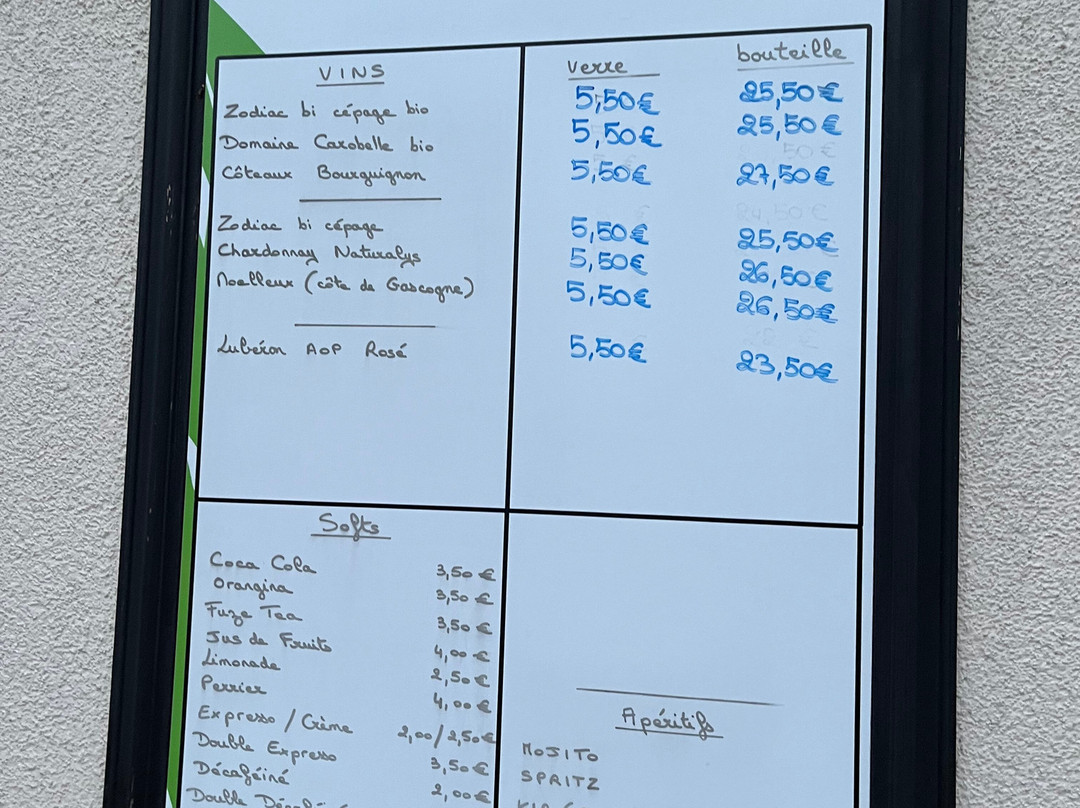 VINS verre bouteille
Zodiac bi cépage bio 5,50€ 25,50€
Domaine Carobelle bio 5,50€ 25,50€
Côteaux Bourguignon 5,50€ 27,50€
Zodiac bi cépage 5,50€ 25,50€
Chardonnay Naturalys 5,50€ 26,50€
Moelleux (côte de Gascogne) 5,50€ 26,50€
Lubéron AOP Rosé 5,50€ 23,50€
Softs
Coca Cola 3,50€
Orangina 3,50€
Fuze Tea 3,50€
Jus de Fruits 4,00€
Limonade 2,50€
Perrier 4,00€
Expresso / Crème 2,00/2,50€
Double Expresso 3,50€
Décaféiné 2,00€
Double
Apéritifs
MOJITO
SPRITZ